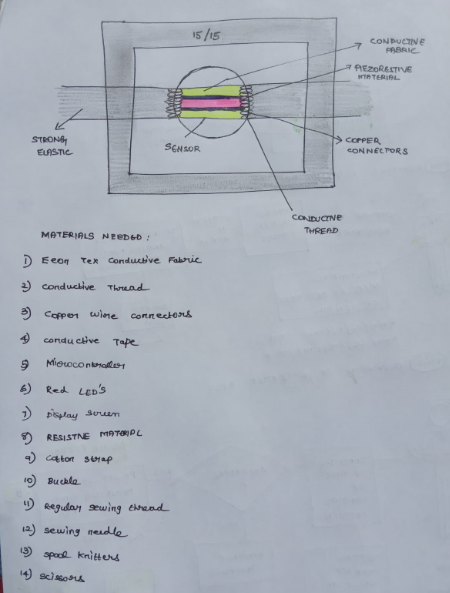 15/15
CONDUCTIVE
FABRIC
PIEZORESTIVE
MATERIAL
STRONG
ELASTIC
SENSOR
COPPER
CONNECTORS
CONDUCTIVE
THREAD
MATERIALS NEEDED :
1) Eeon Tex Conductive Fabric
2) Conductive Thread
3) Copper wire connectors
4) conductive Tape
5) Microcontroller
6) Red LED'S
7) Display screen
8) RESISTIVE MATERIAL
9) Cotton strap
10) Buckle
11) Regular sewing thread
12) sewing needle
13) spool knitters
14) scissors